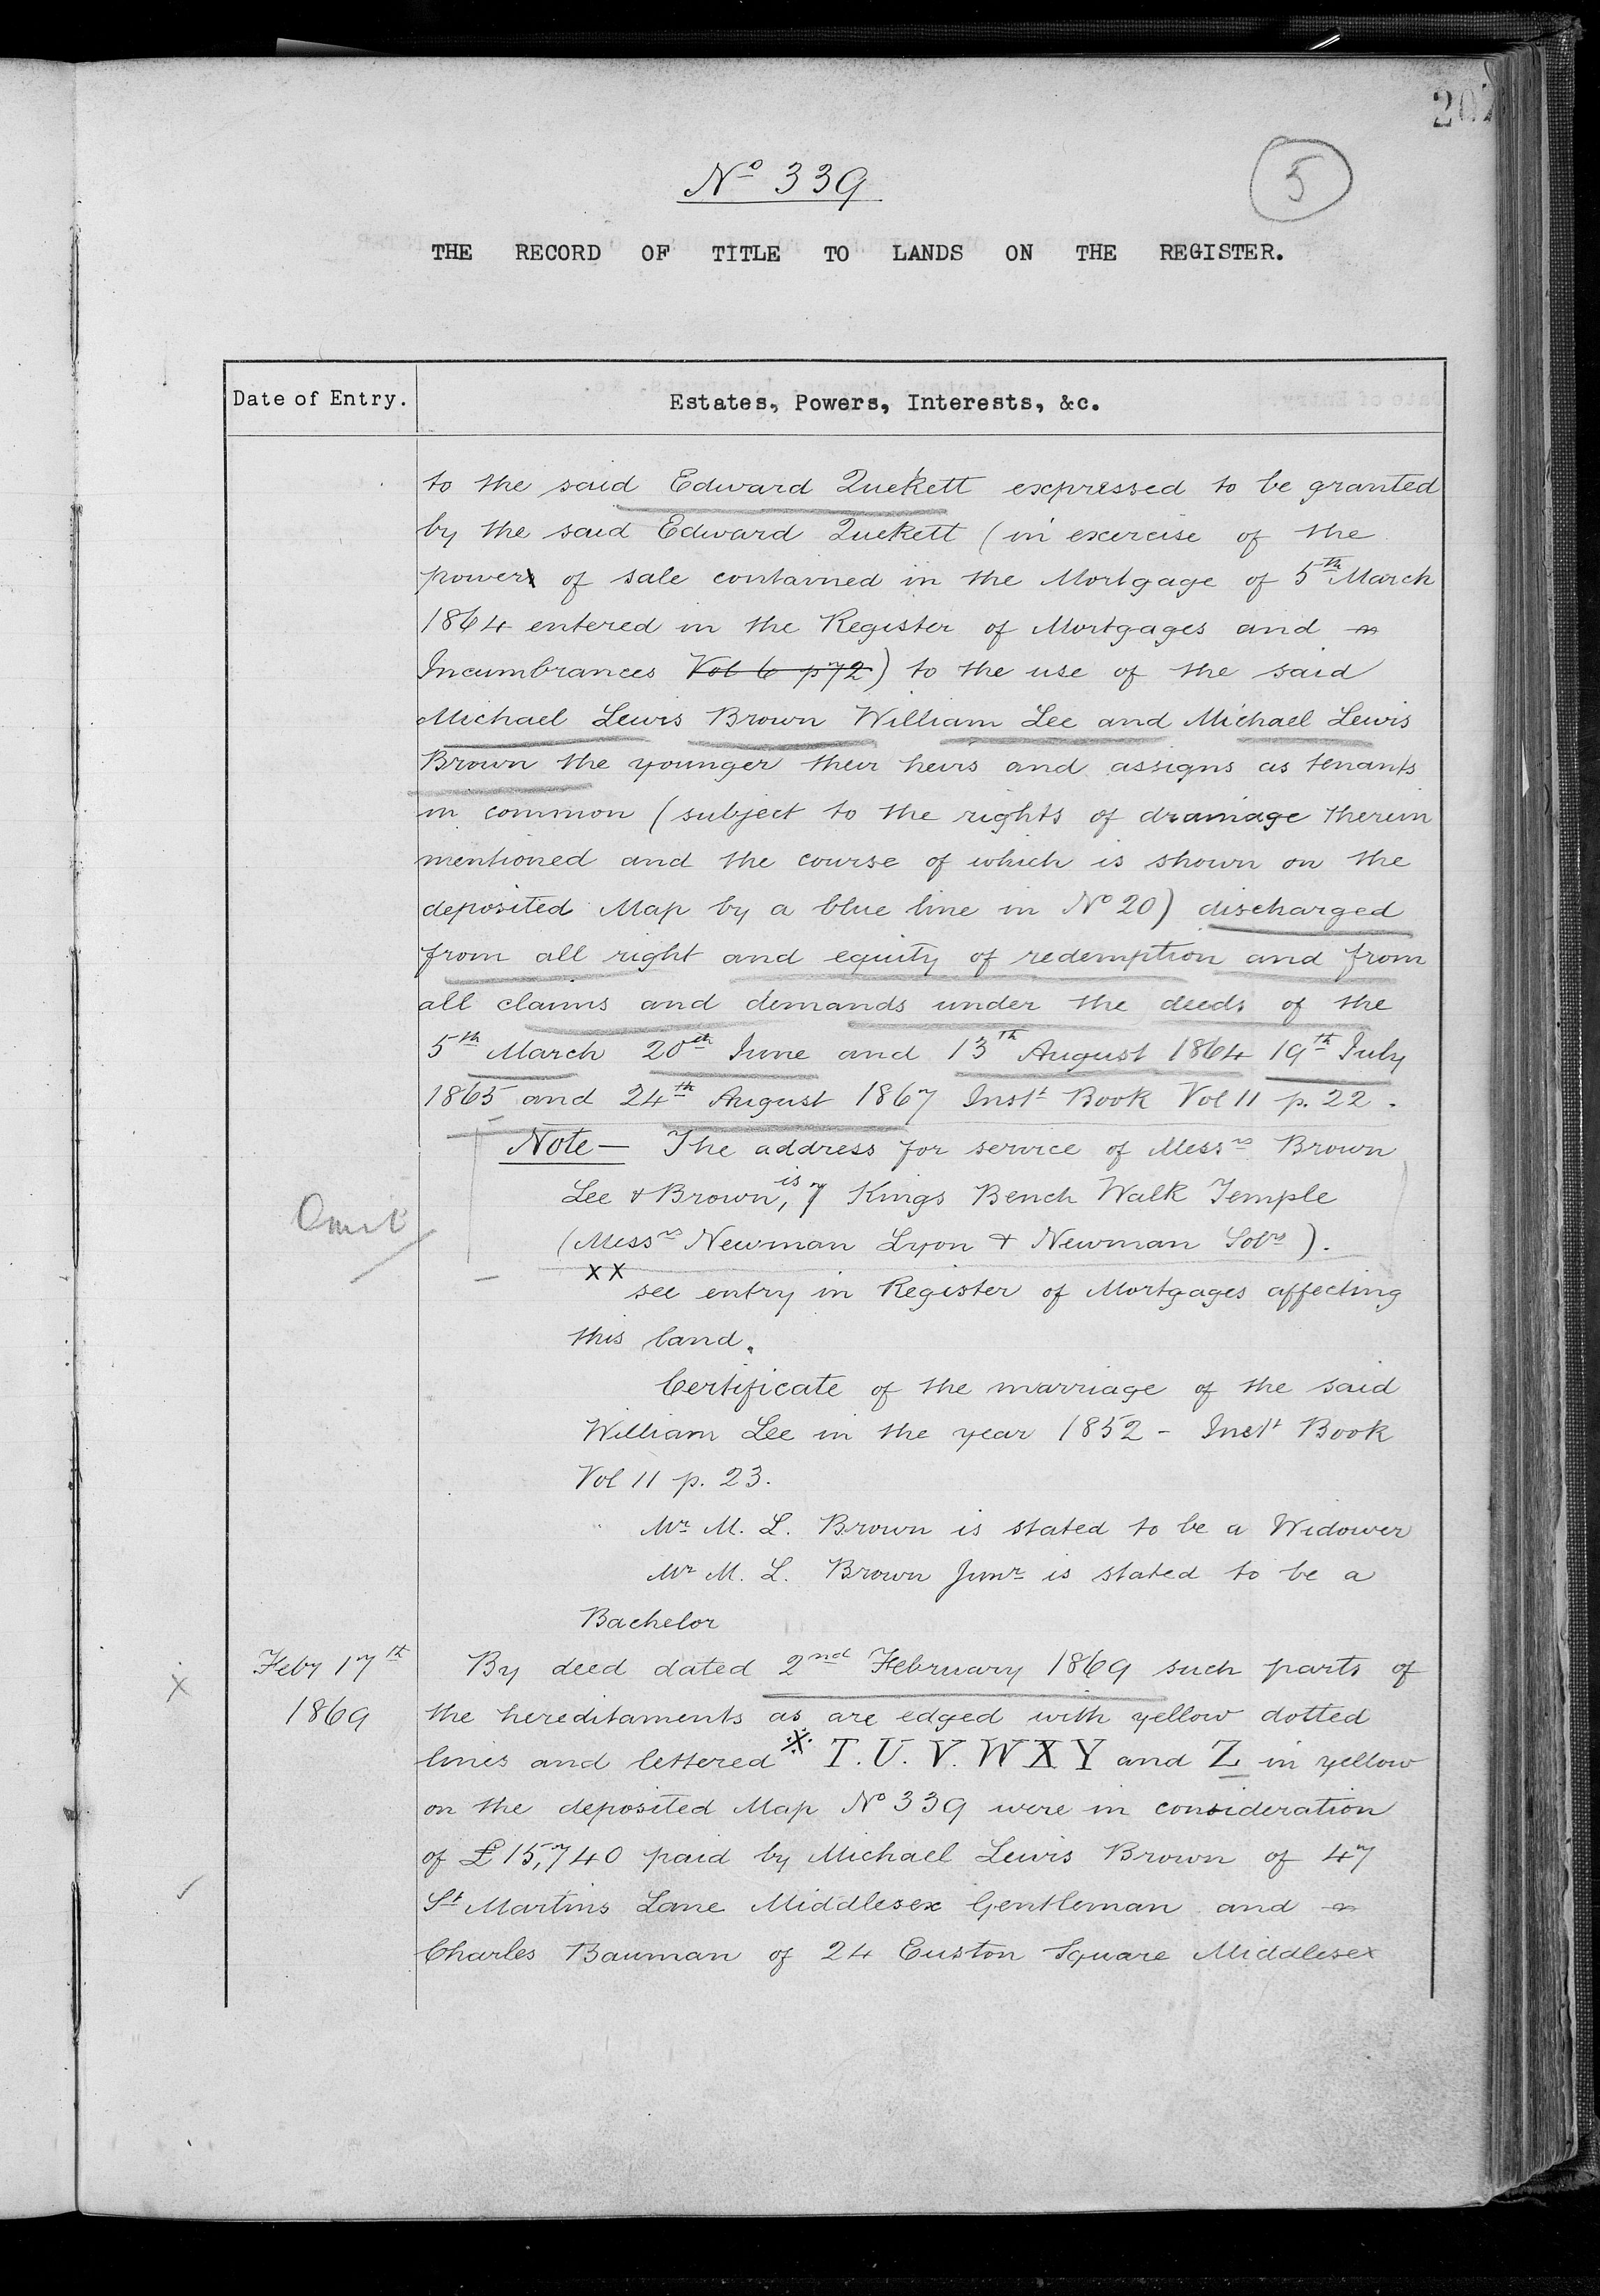 207
Nº 339
5
THE RECORD OF TITLE TO LANDS ON THE REGISTER.
Date of Entry.
Estates, Powers, Interests, &c.
to the said Edward Quekett expressed to be granted
by the said Edward Quekett (in exercise of the
power of sale contained in the Mortgage of 5th March
1864 entered in the Register of Mortgages and
Incumbrances Vol 6 p 72) to the use of the said
Michael Lewis Brown William Lee and Michael Lewis
Brown the younger their heirs and assigns as tenants
in common (subject to the rights of drainage therein
mentioned and the course of which is shown on the
deposited Map by a blue line in Nº 20) discharged
from all right and equity of redemption and from
all claims and demands under the deeds of the
5th March 20th June and 13th August 1864 19th July
1865 and 24th August 1867 Inst Book Vol 11 p. 22.
Note — The address for service of Messrs Brown
Lee & Brown, is 7 Kings Bench Walk Temple
Omit
(Messrs Newman Lyon & Newman Solrs).
xx see entry in Register of Mortgages affecting
this land.
Certificate of the marriage of the said
William Lee in the year 1852 - Inst Book
Vol 11 p. 23.
Mr M. L. Brown is stated to be a Widower
Mr M. L. Brown Junr is stated to be a
Bachelor
Feby 17th
1869
x
By deed dated 2nd February 1869 such parts of
the hereditaments as are edged with yellow dotted
lines and lettered x T. U. V. W X Y and Z in yellow
on the deposited Map Nº 339 were in consideration
of £15,740 paid by Michael Lewis Brown of 47
St Martins Lane Middlesex Gentleman and
Charles Bauman of 24 Euston Square Middlesex